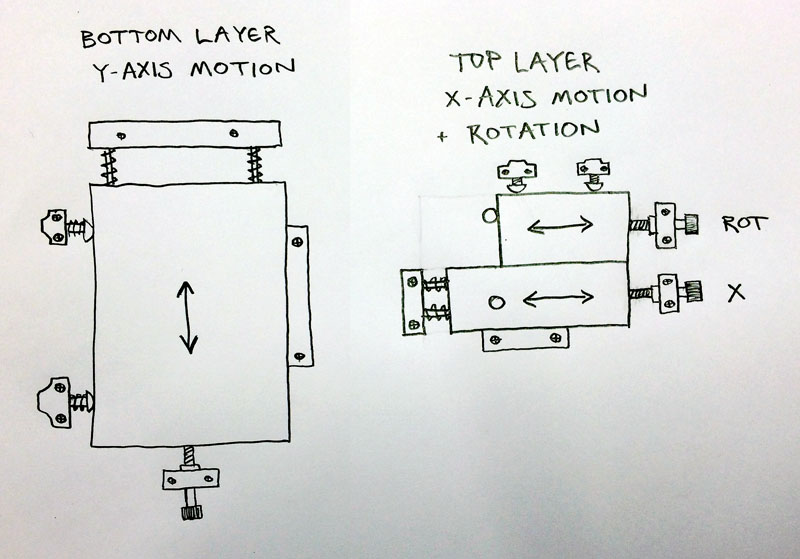 BOTTOM LAYER
Y-AXIS MOTION
TOP LAYER
X-AXIS MOTION
+ ROTATION
ROT
X